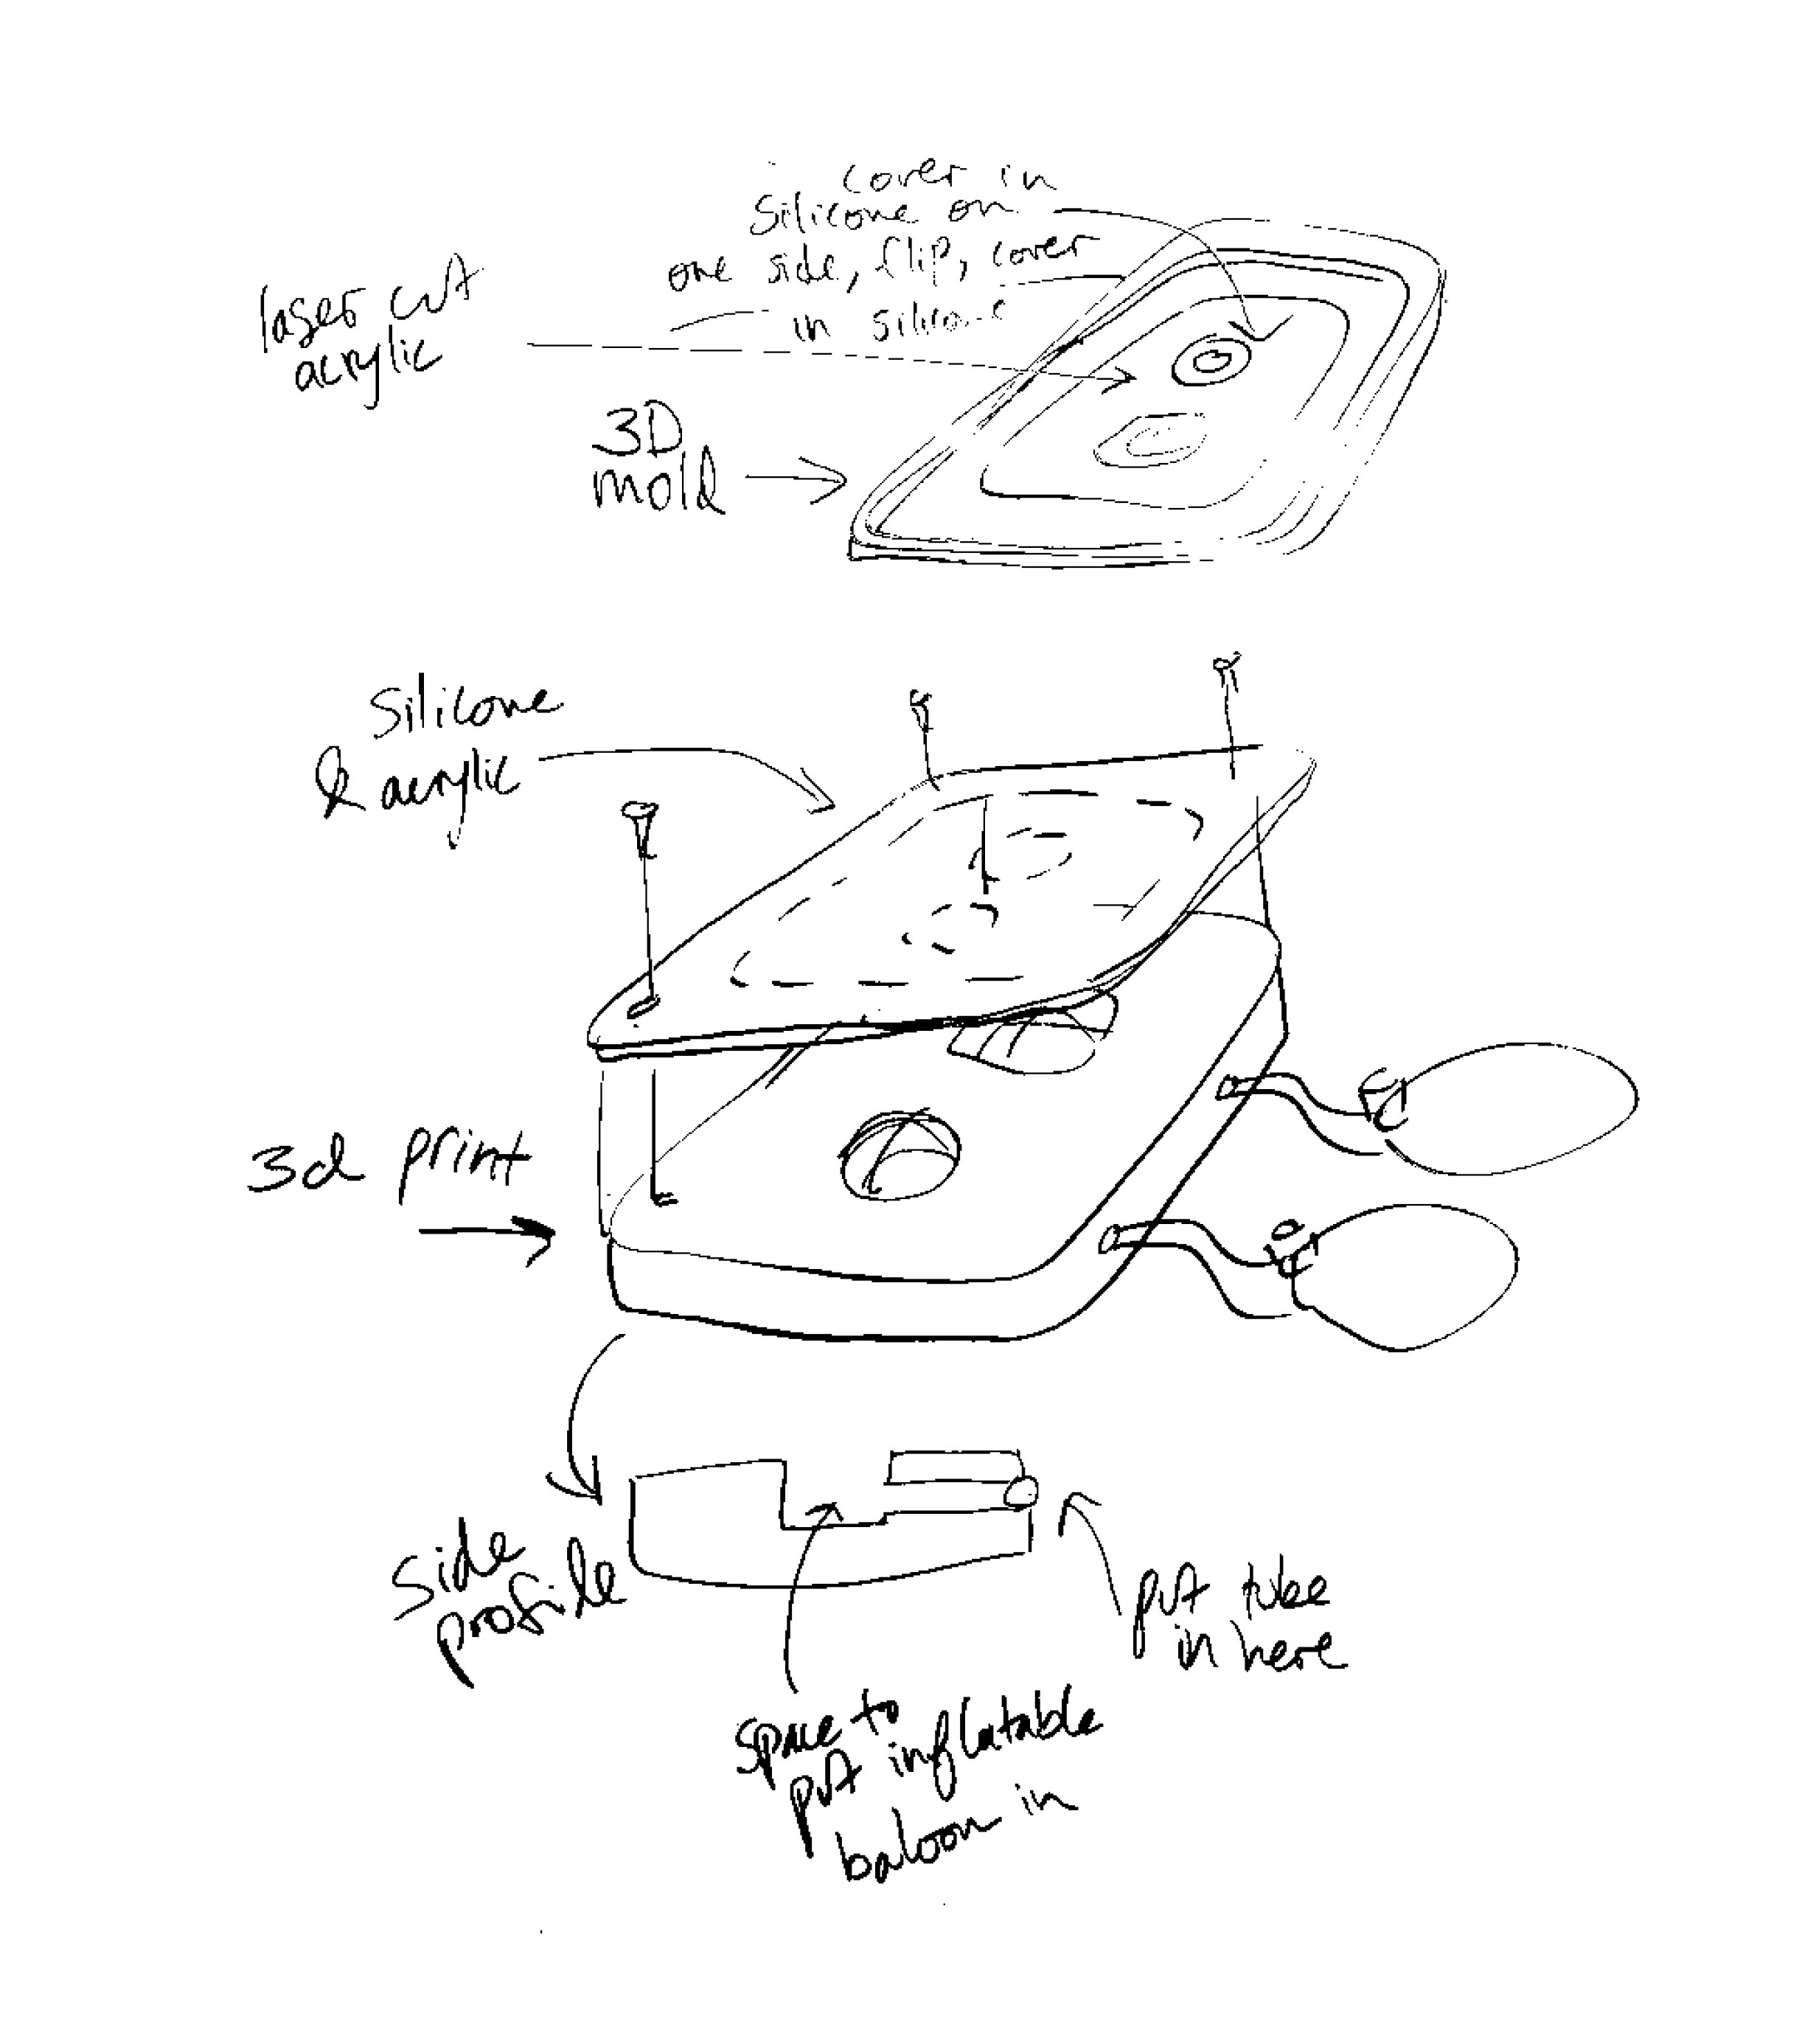 cover in
silicone on
one side, flip, cover
in silicone
laser cut
acrylic
3D
mold
Silicone
& acrylic
3d print
side
profile
put tube
in here
space to
put inflatable
baloon in